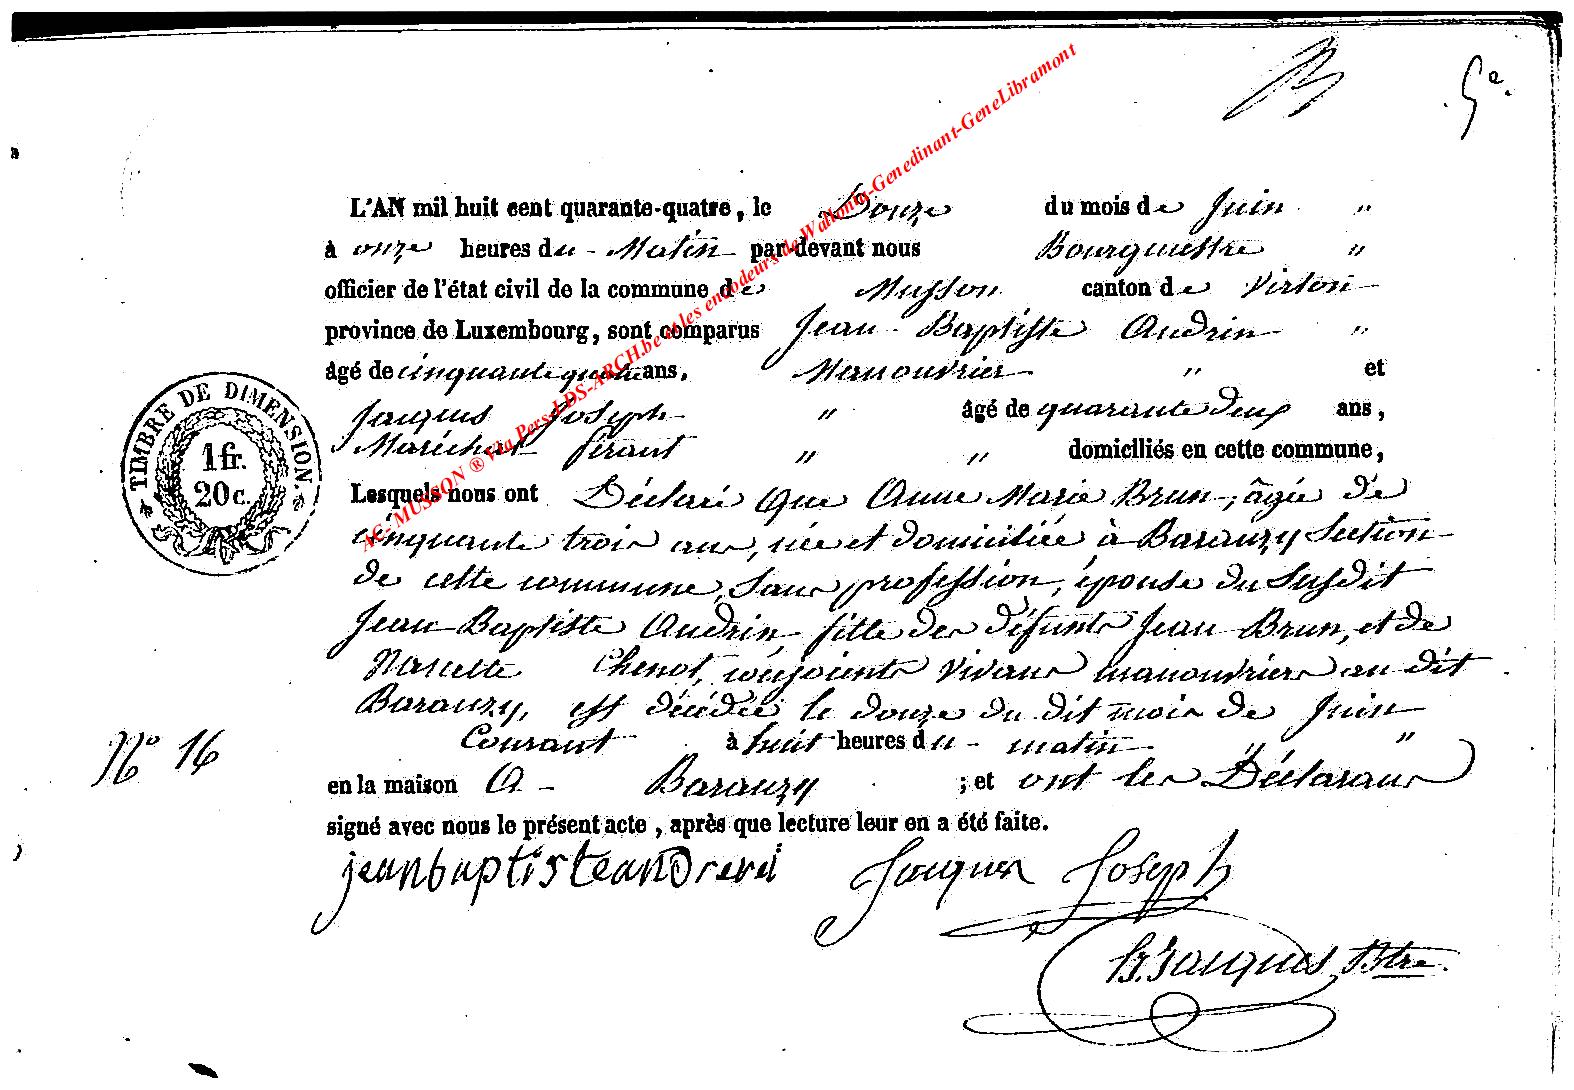 5e.
L'AN mil huit cent quarante-quatre, le Douze du mois de Juin "
à onze heures du - Matin par-devant nous Bourgmestre "
officier de l'état civil de la commune de Musson canton de Virton
province de Luxembourg, sont comparus Jean Baptiste Audrin "
âgé de cinquante quatre ans, Manouvrier " et
Jacques Joseph " âgé de quarante deux ans,
Maréchal ferant " " domiciliés en cette commune,
Lesquels nous ont Déclaré que Anne Marie Brun, âgée de
cinquante trois ans, née et domiciliée à Baranzy Section
de cette commune, Sans profession, épouse du Susdit
Jean Baptiste Audrin, fille des défunts Jean Brun, et de
Marcelle Chenot, conjoints vivans manouvriers au dit
Baranzy, est décédée le douze du dit mois de Juin
Courant à huit heures du - matin " "
en la maison A - Baranzy ; et ont les Déclarans
signé avec nous le présent acte, après que lecture leur en a été faite.
TIMBRE DE DIMENSION.
1 fr.
20 c.
N° 16
Jacques Joseph
Jacques Btre.
AC- MUSSON ® via Pers-LDS-ARCH.be et les encodeurs de Wallonia-Genedinant-GeneLibramont